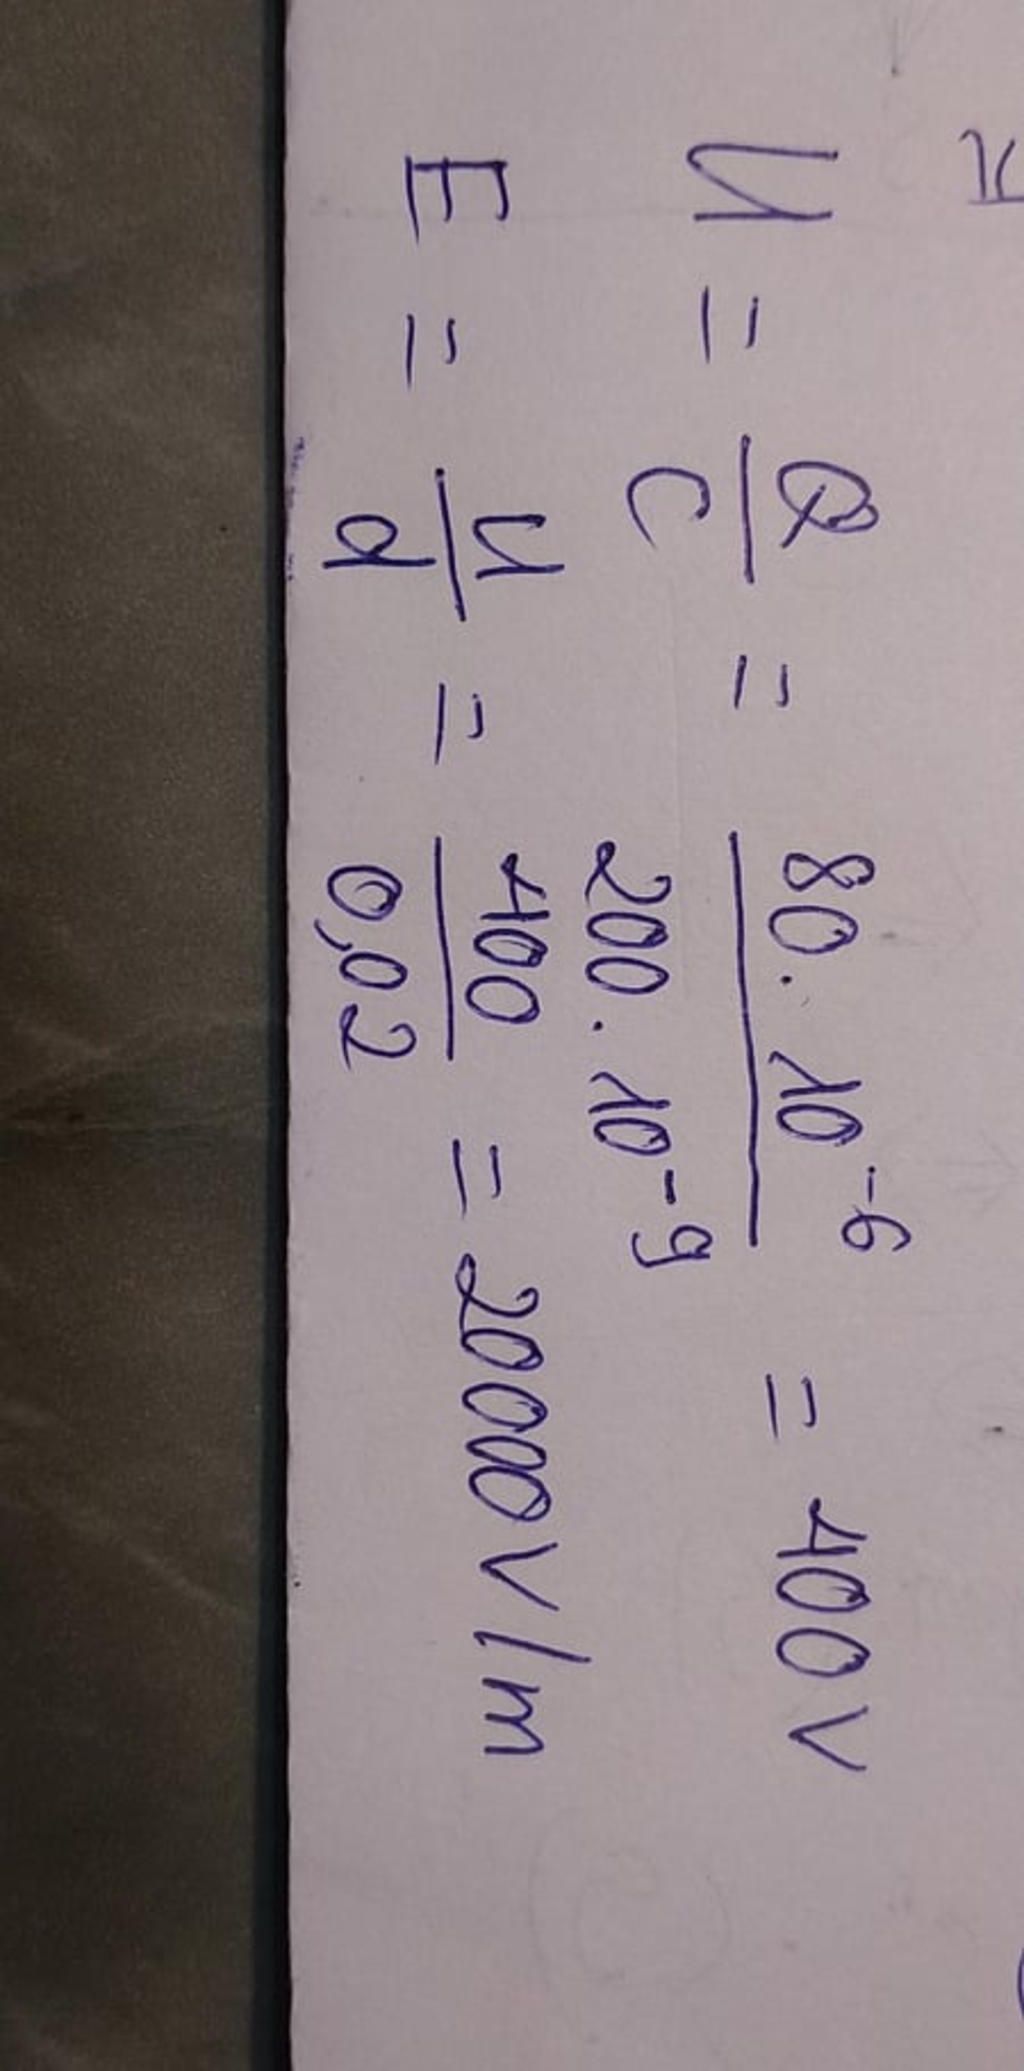 U = Q/C = 80 · 10⁻⁶ / 200 · 10⁻⁹ = 400 V
E = U/d = 400/0,02 = 20000 V/m